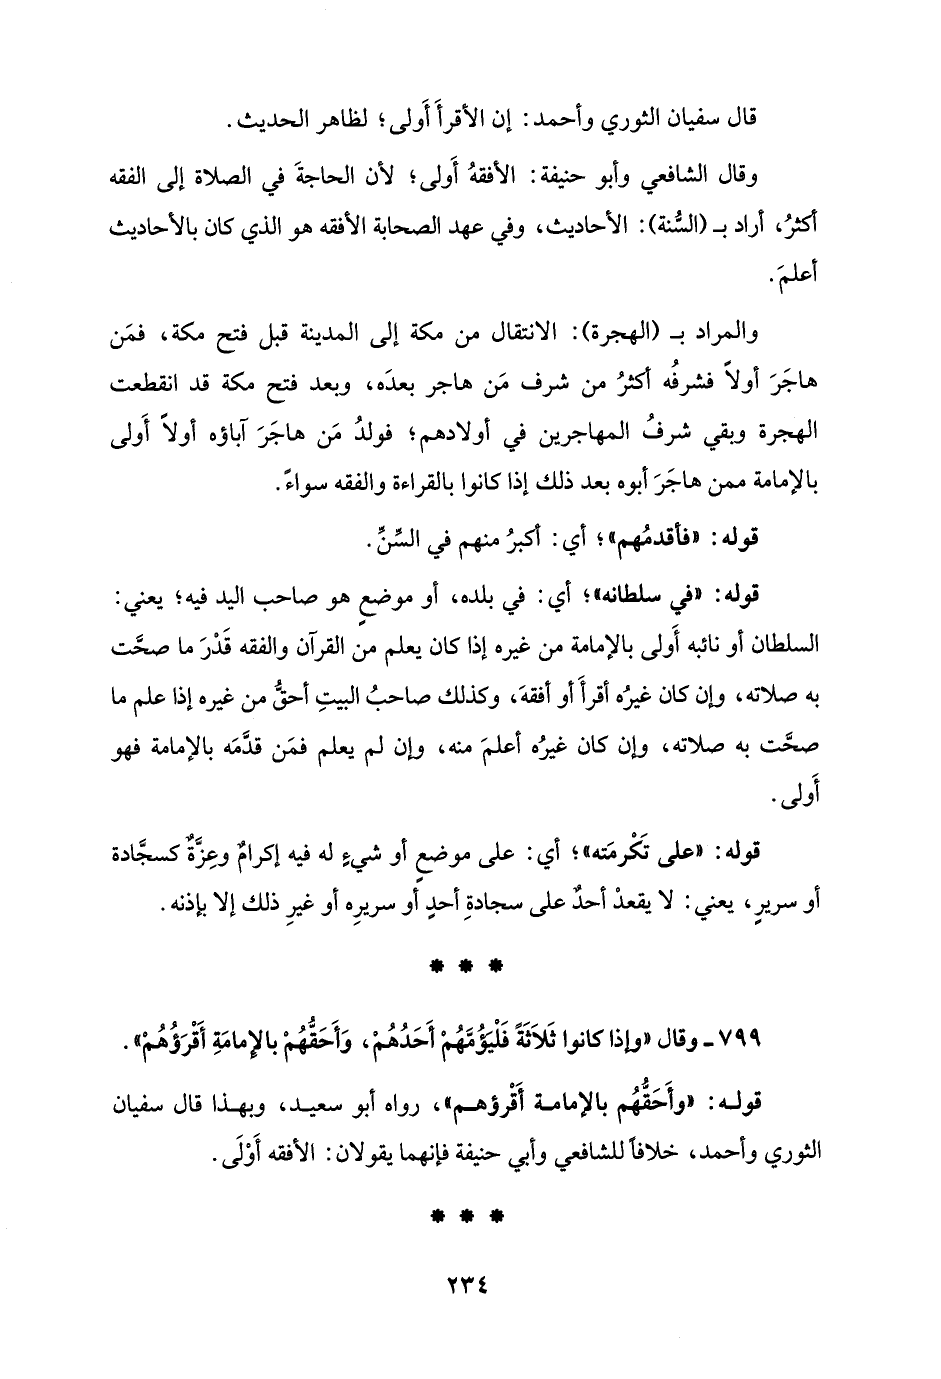 قال سفيان الثوري وأحمد: إن الأقرأَ أَولى؛ لظاهر الحديث.
وقال الشافعي وأبو حنيفة: الأفقهُ أَولى؛ لأن الحاجةَ في الصلاة إلى الفقه
أكثرُ، أراد بـ (السُّنة): الأحاديث، وفي عهد الصحابة الأفقه هو الذي كان بالأحاديث
أعلمَ.
والمراد بـ (الهجرة): الانتقال من مكة إلى المدينة قبل فتح مكة، فمَن
هاجَرَ أولاً فشرفُه أكثرُ من شرف مَن هاجر بعدَه، وبعد فتح مكة قد انقطعت
الهجرة وبقي شرفُ المهاجرين في أولادهم؛ فولدُ مَن هاجَرَ آباؤه أولاً أَولى
بالإمامة ممن هاجَرَ أبوه بعد ذلك إذا كانوا بالقراءة والفقه سواءً.
قوله: «فأقدمُهم»؛ أي: أكبرُ منهم في السِّنِّ.
قوله: «في سلطانه»؛ أي: في بلده، أو موضعٍ هو صاحب اليد فيه؛ يعني:
السلطان أو نائبه أَولى بالإمامة من غيره إذا كان يعلم من القرآن والفقه قَدْرَ ما صحَّت
به صلاته، وإن كان غيرُه أقرأَ أو أفقهَ، وكذلك صاحبُ البيتِ أحقُّ من غيره إذا علم ما
صحَّت به صلاته، وإن كان غيرُه أعلمَ منه، وإن لم يعلم فمَن قدَّمَه بالإمامة فهو
أَولى.
قوله: «على تَكْرمَته»؛ أي: على موضعٍ أو شيءٍ له فيه إكرامٌ وعِزَّةٌ كسجَّادة
أو سريرٍ، يعني: لا يقعدْ أحدٌ على سجادةِ أحدٍ أو سريرِه أو غيرِ ذلك إلا بإذنه.
* * *
٧٩٩ ـ وقال «وإذا كانوا ثَلاَثَةً فَلْيَؤُمَّهُمْ أَحَدُهُمْ، وَأَحَقُّهُمْ بالإِمامَةِ أَقْرَؤُهُمْ».
قولـه: «وأَحَقُّهُم بالإمامـة أَقْرؤهـم»، رواه أبو سعيـد، وبهـذا قال سفيان
الثوري وأحمد، خلافاً للشافعي وأبي حنيفة فإنهما يقولان: الأفقه أَوْلَى.
* * *
٢٣٤